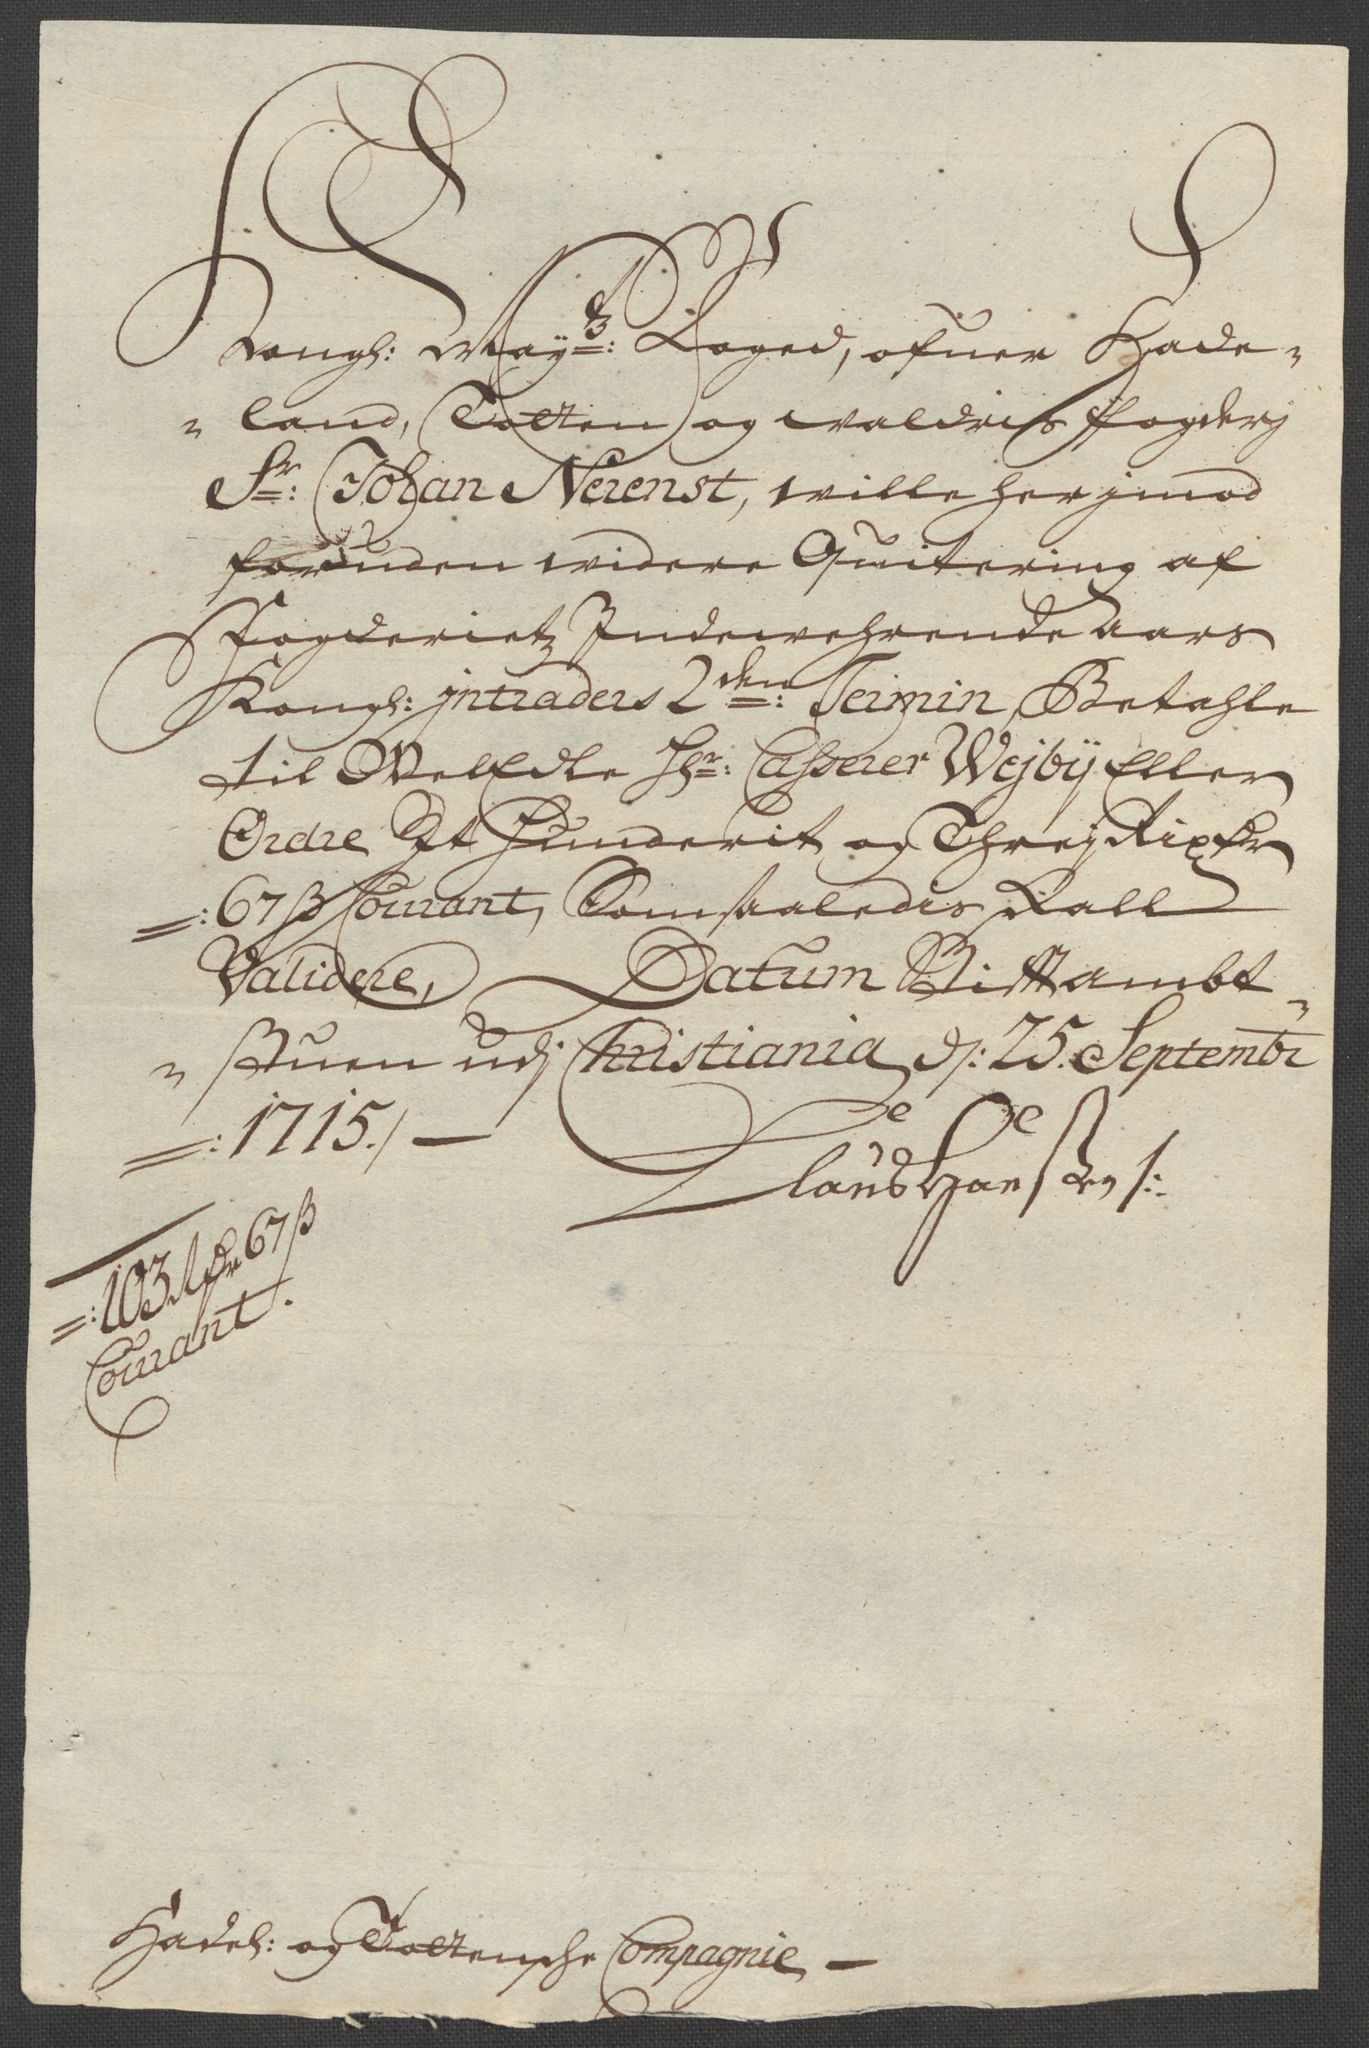 Kongl: May:tz Foged, ofuer Hade-
land, Totten og Waldris ffogderj
Sr: Johan Neienst, wille her jmod
foruden widere Quitering af
ffogderietz Indewehrende Aars
Kongl: jntraders 2den: Termin, Betahle
til WelEdle Hr: Casserer Wejbÿ Eller
Ordre Et Hunderit og Threj Rixdr
=: 67 ß Courant, Som saaledis skall
Validere, Datum Stiftambt-
stuen udj Christiania, d: 25. Septembr
=: 1715. /
Claus Hanssen /:
=: 103 Rdr 67 ß
Courant.
Hadel: og Tottensche Compagnie